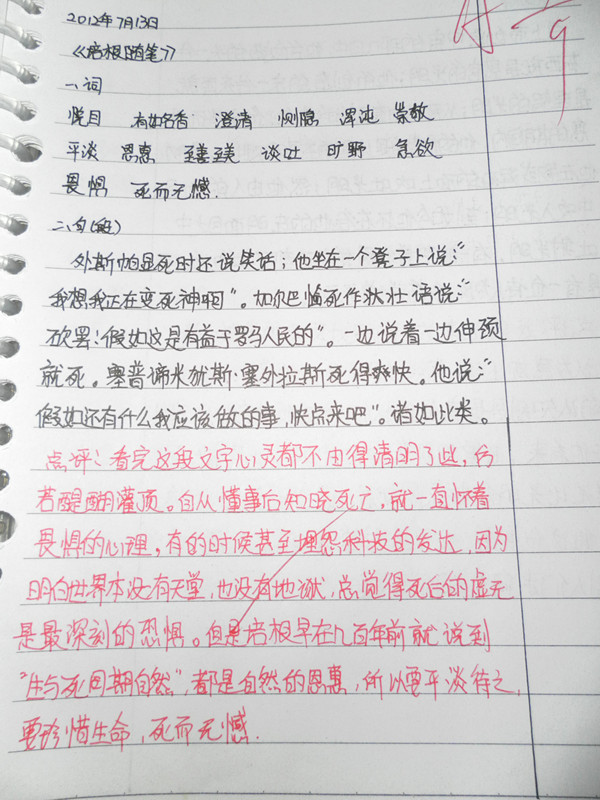 2012年7月13日
《培根随笔》
一、词
悦目 有如名香 澄清 恻隐 浑沌 崇敬
平淡 恩惠 至善至美 谈吐 旷野 急欲
畏惧 死而无憾.
二、句(段)
外斯帕显死时还说笑话；他坐在一个凳子上说："
我想我正在变死神啊"。加尔巴临死作状壮语说："
砍罢！假如这是有益于罗马人民的"。一边说着一边伸颈
就死。塞普谛米犹斯·塞外拉斯死得爽快。他说："
假如还有什么我应该做的事，快点来吧"。诸如此类。
点评：看完这段文字心灵都不由得清明了些，仿
若醍醐灌顶。自从懂事后知晓死亡，就一直怀着
畏惧的心理，有的时候甚至埋怨科技的发达，因为
明白世界本没有天堂，也没有地狱，总觉得死后的虚无
是最深刻的恐惧。但是培根早在几百年前就说到
"生与死同期自然"，都是自然的恩惠，所以要平淡待之，
要珍惜生命，死而无憾.
9